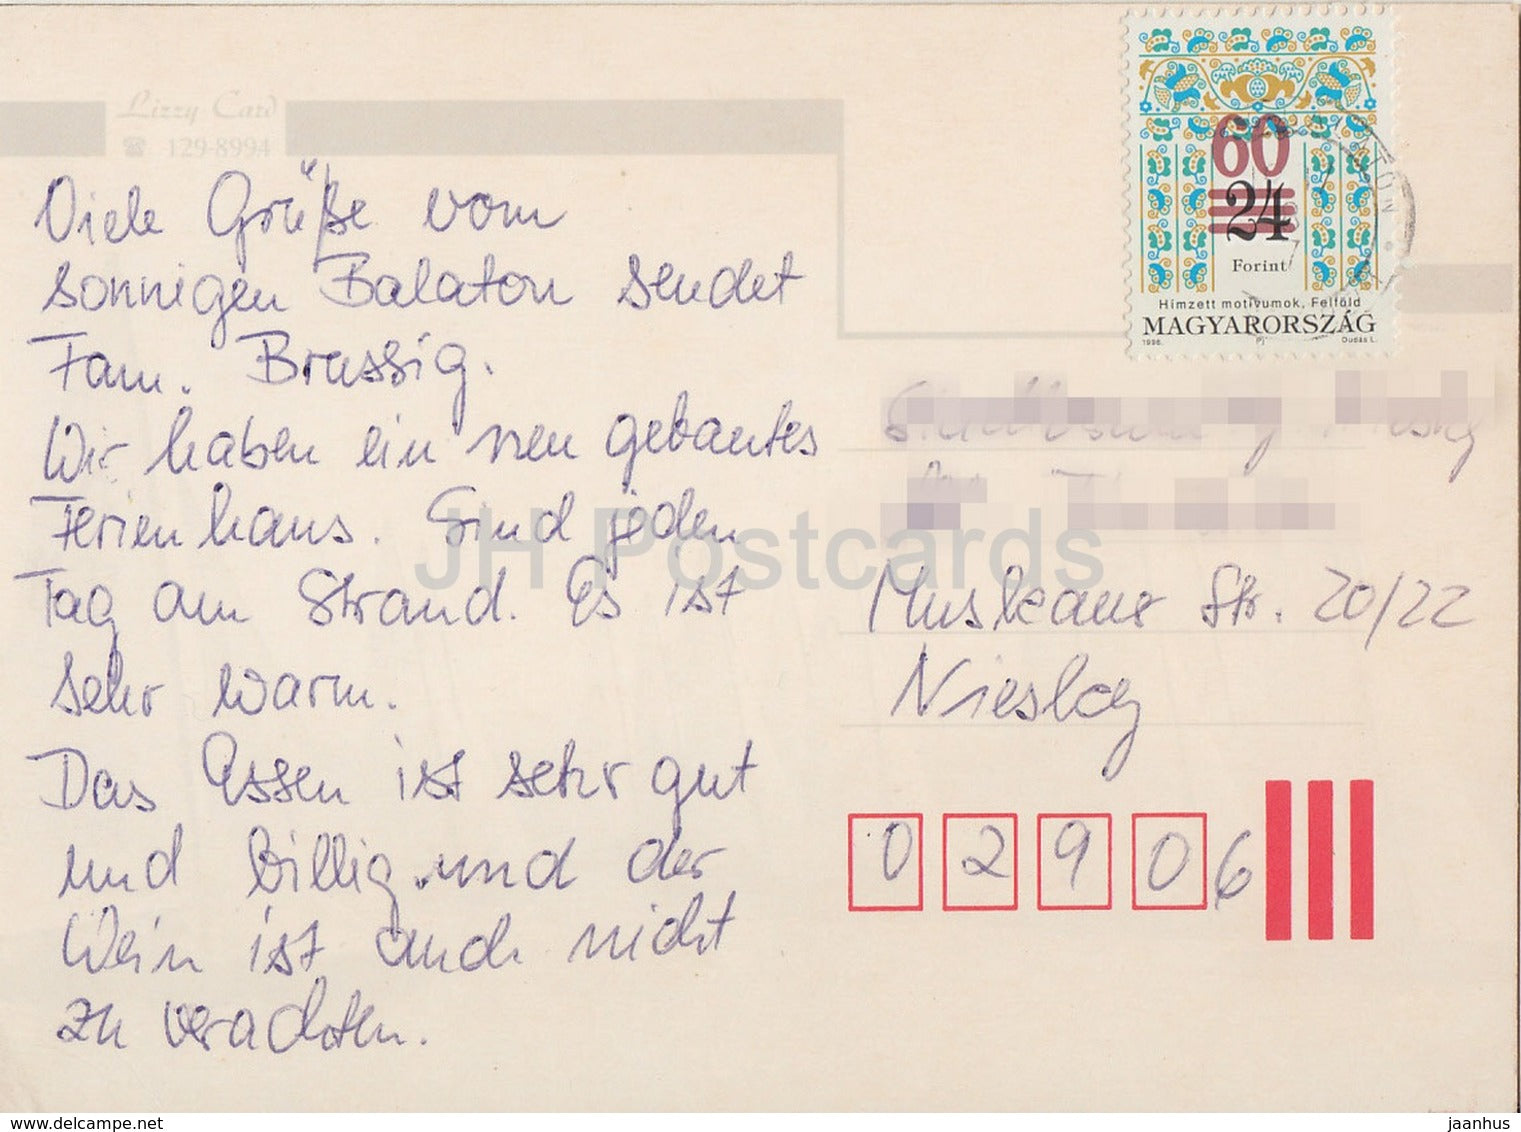 Lizzy Card
☎ 129-8994
Viele Grüße vom
sonnigen Balaton sendet
Fam. Brussig.
Wir haben ein neu gebautes
Ferienhaus. Sind jeden
Tag am Strand. Es ist
sehr warm.
Das Essen ist sehr gut
und billig und der
Wein ist auch nicht
zu verachten.
60
24
Forint
Hímzett motívumok, Felföld
MAGYARORSZÁG
1996. Dudás L.
Muskauer Str. 20/22
Niesky
02906
JH Postcards
www.delcampe.net
jaanhus